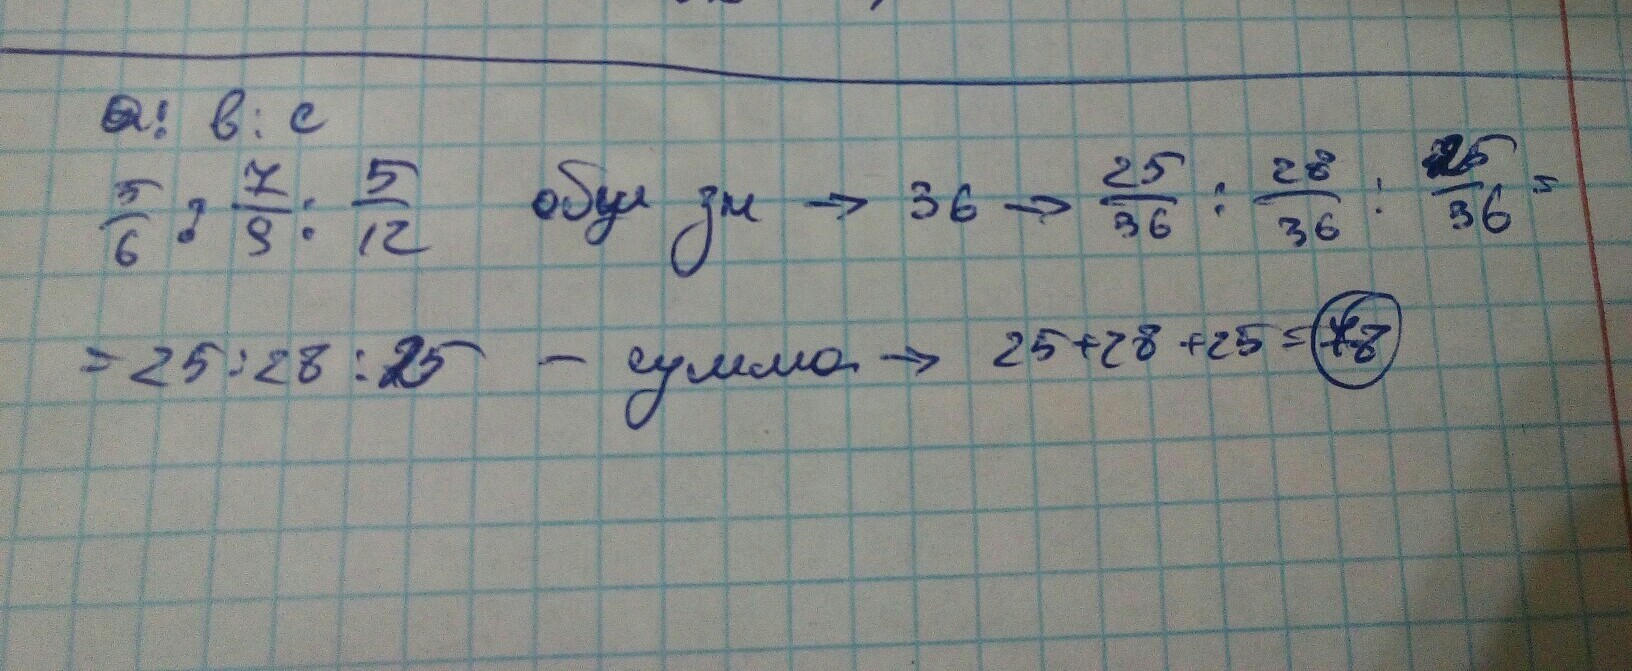 а: в: с
5/6 : 7/9 : 5/12 общ зн → 36 → 25/36 : 28/36 : 25/36 =
= 25:28:25 – сумма → 25+28+25=78